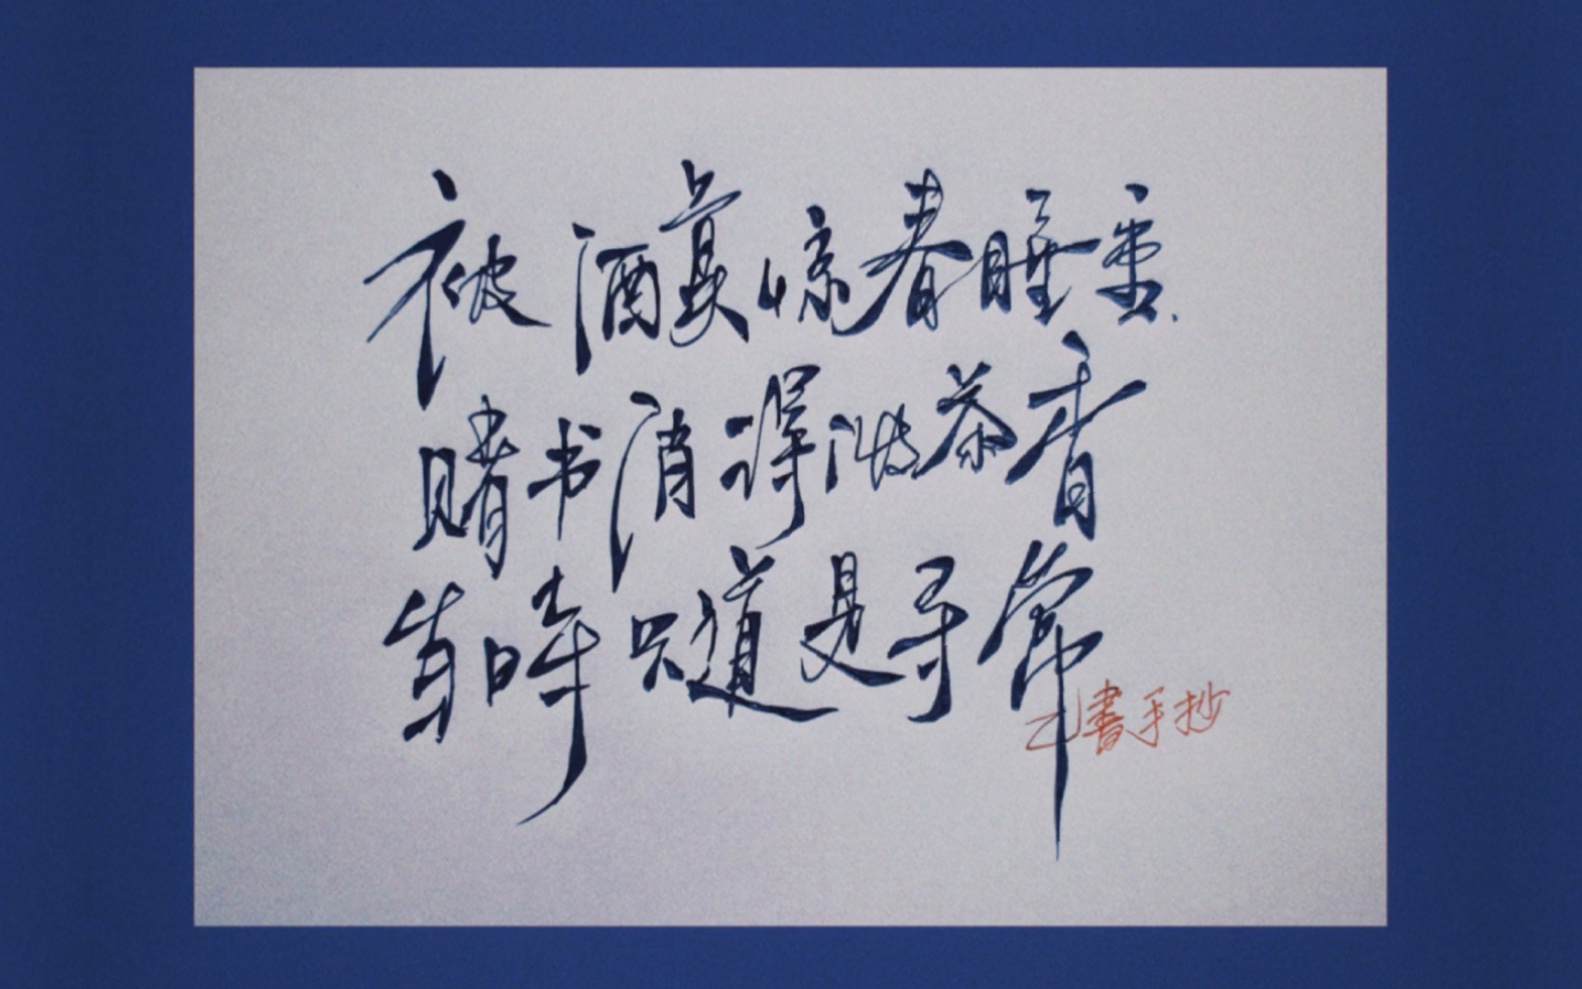 被酒莫惊春睡重
赌书消得泼茶香
当时只道是寻常
書手抄